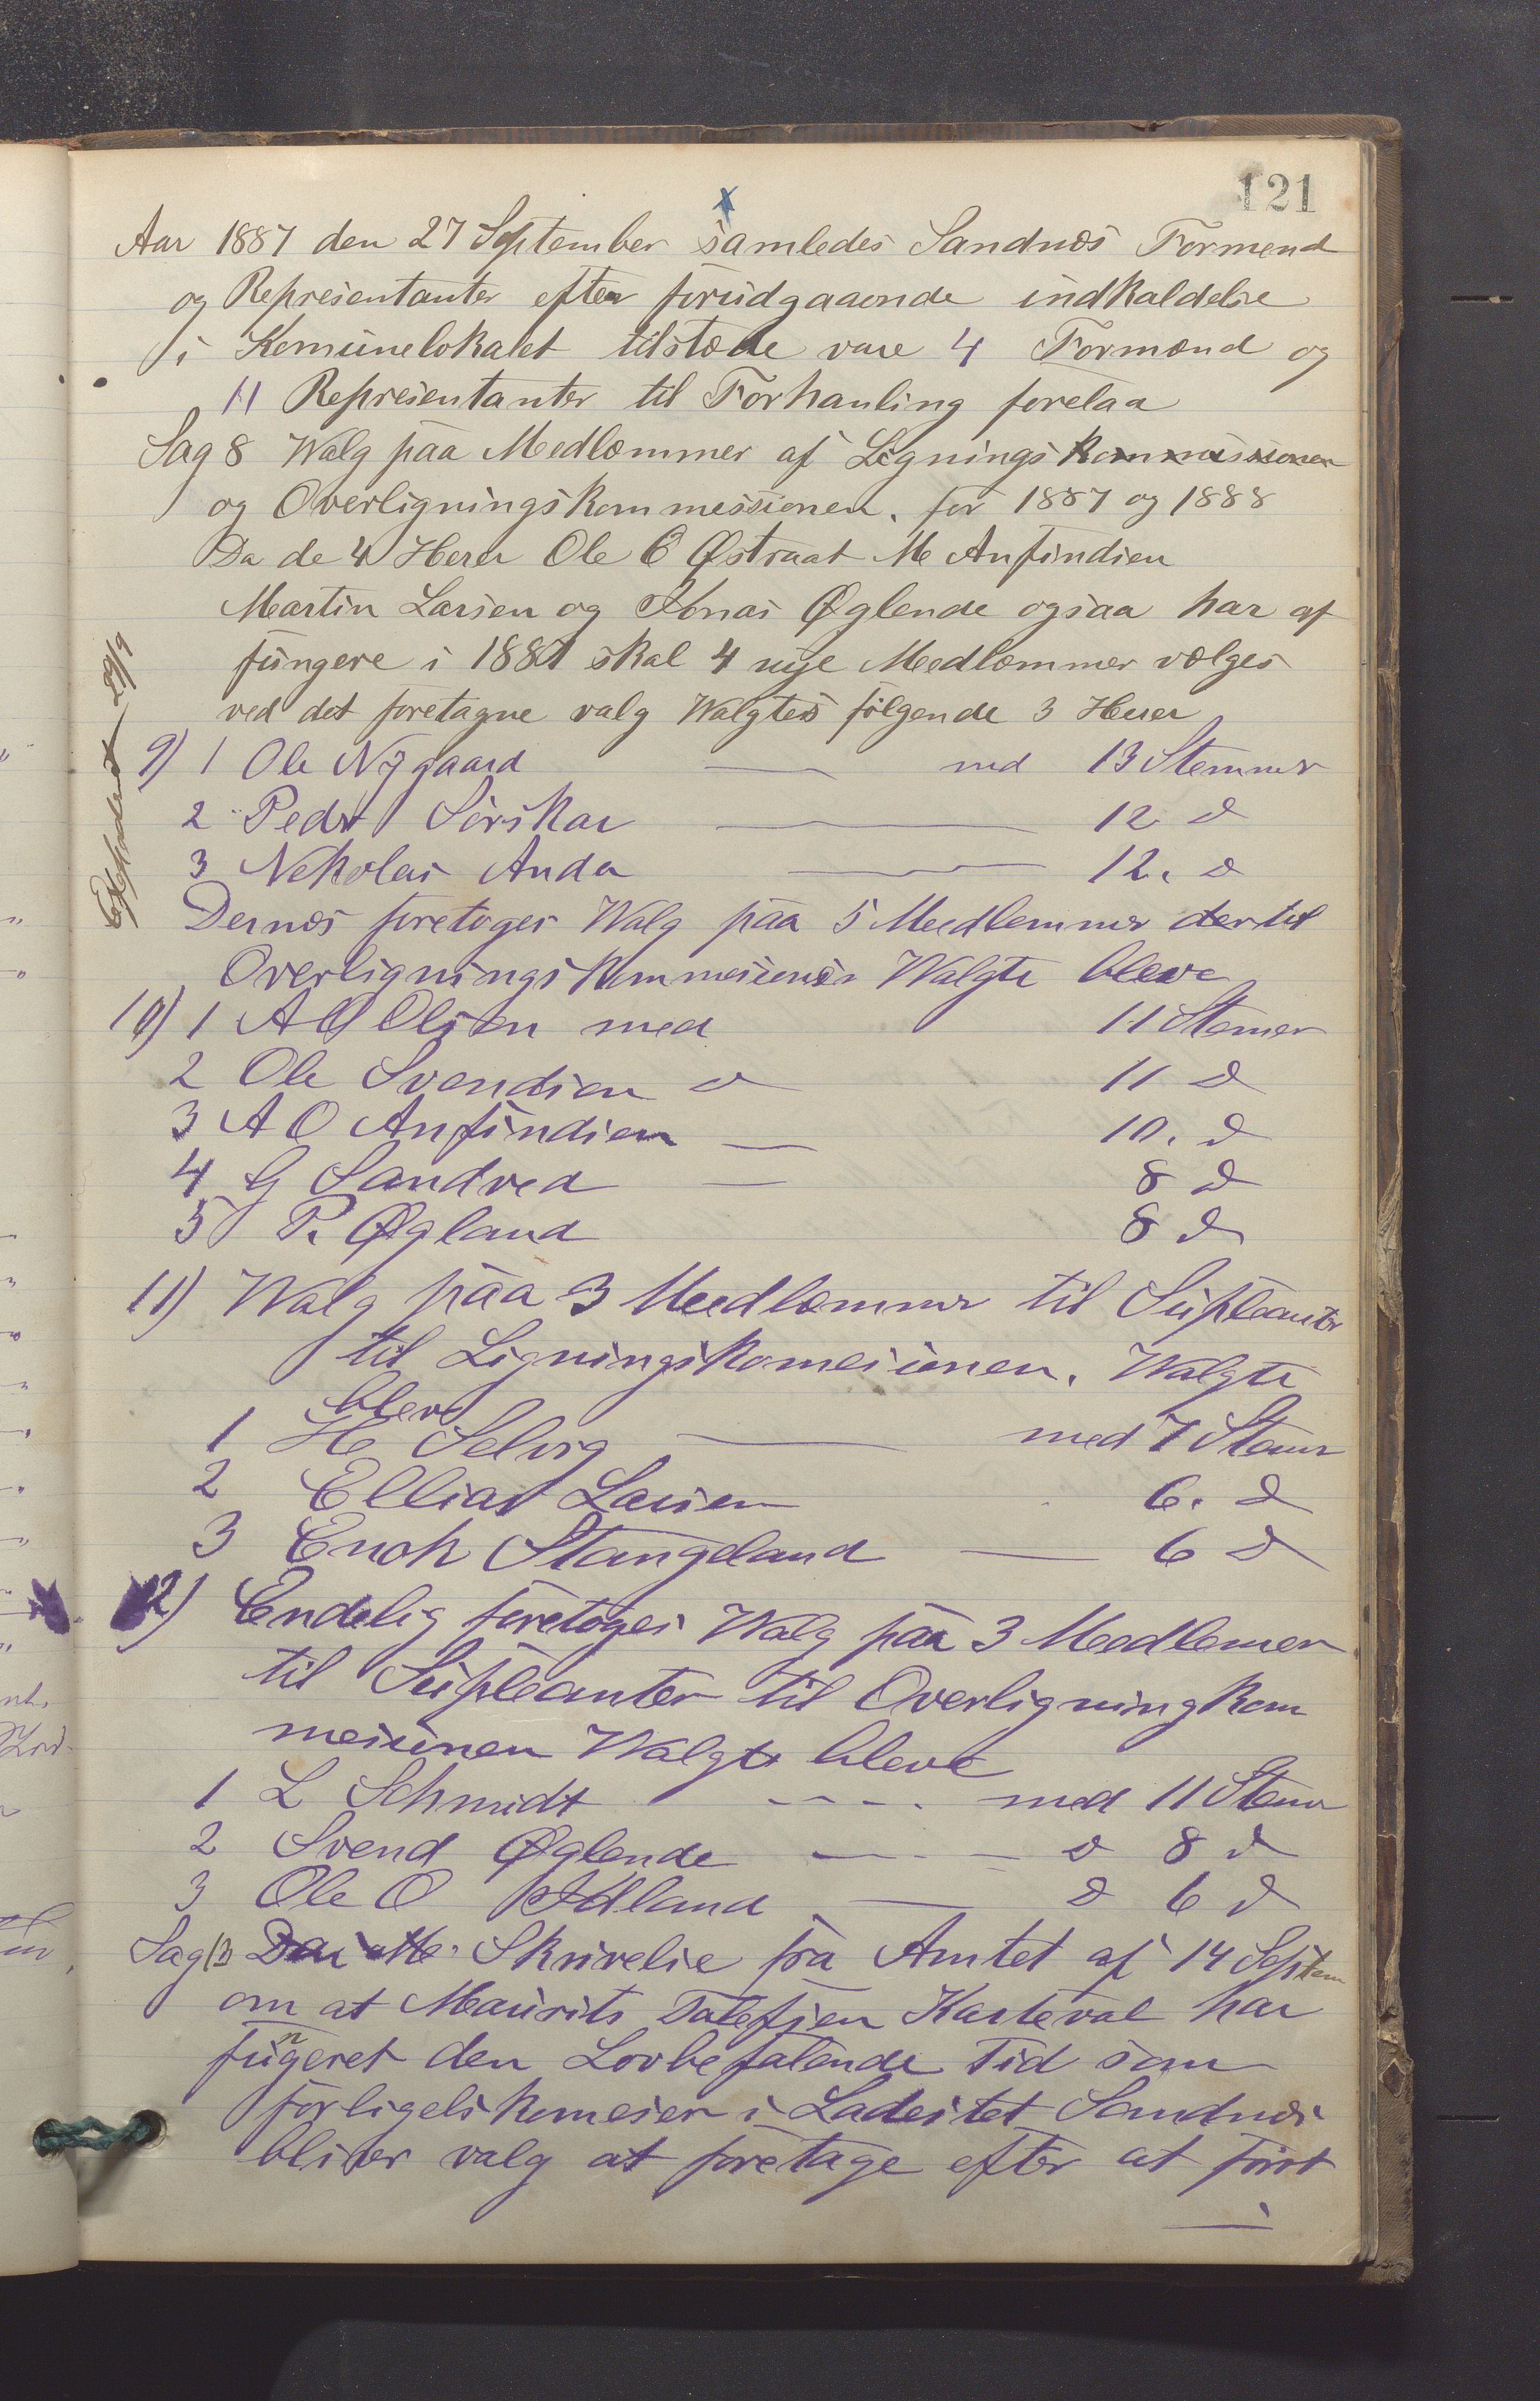 121
Aar 1887 den 27 September samledes Sandnæs Formend
og Representanter efter forudgaaende indkaldelse
i Komunelokalet tilstæde vare 4 Formænd og
11 Representanter til Forhanling forelaa
Sag 8 Walg paa Medlæmmer af Lignings kommisionen
og Overligningskommessionen. for 1887 og 1888
Da de 4 Herer Ole O Østraat M Anfindsen
Martin Larsen og Jonas Øglende ogsaa har af
fungere i 1887 skal 4 nye Medlæmmer vælges
ved det foretagne valg Walgtes følgende 3 Herer
Expederet 29/9
9) 1 Ole Nygaard — med 13 Stemmer
2 Peder Sørskar — 12 d
3 Nekolai Anda — 12. d
Dernæs foretoges Walg paa 5 Medlemmer dertil
Overligningskommesionen Walgte bleve
10) 1 A O Olsen med 11 Stemer
2 Ole Svendsen d 11 d
3 A O Anfindsen — 10. d
4 G Sandved — 8 d
5 P. Øgland 8 d
11) Walg paa 3 Medlæmmer til Supleanter
til Ligningskomesionen. Walgte
bleve
1 H Selvig — med 7 Stemr
2 Ellias Larsen 6. d
3 Enok Stangeland — 6 d
12) Endelig foretoges Walg paa 3 Medlemer
til Supleanter til Overligningkom
mesionen Walgte bleve
1 L Schmidt - - - . med 11 Stemr
2 Svend Øglende — . — d 8 d
3 Ole O Adland — d 6 d
Sag 13 Skrivelse fra Amtet af 14 Septem
om at Maurits Kartevol har
fungeret den Lovbefalende Tid som
forligelskomeser i Ladestet Sandnæs
bliver valg at foretage efter at først